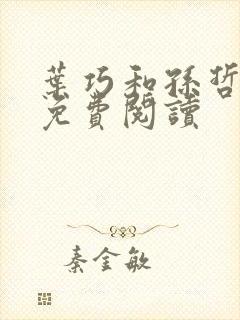 葉巧和孫哲
免費閱讀
秦金敏